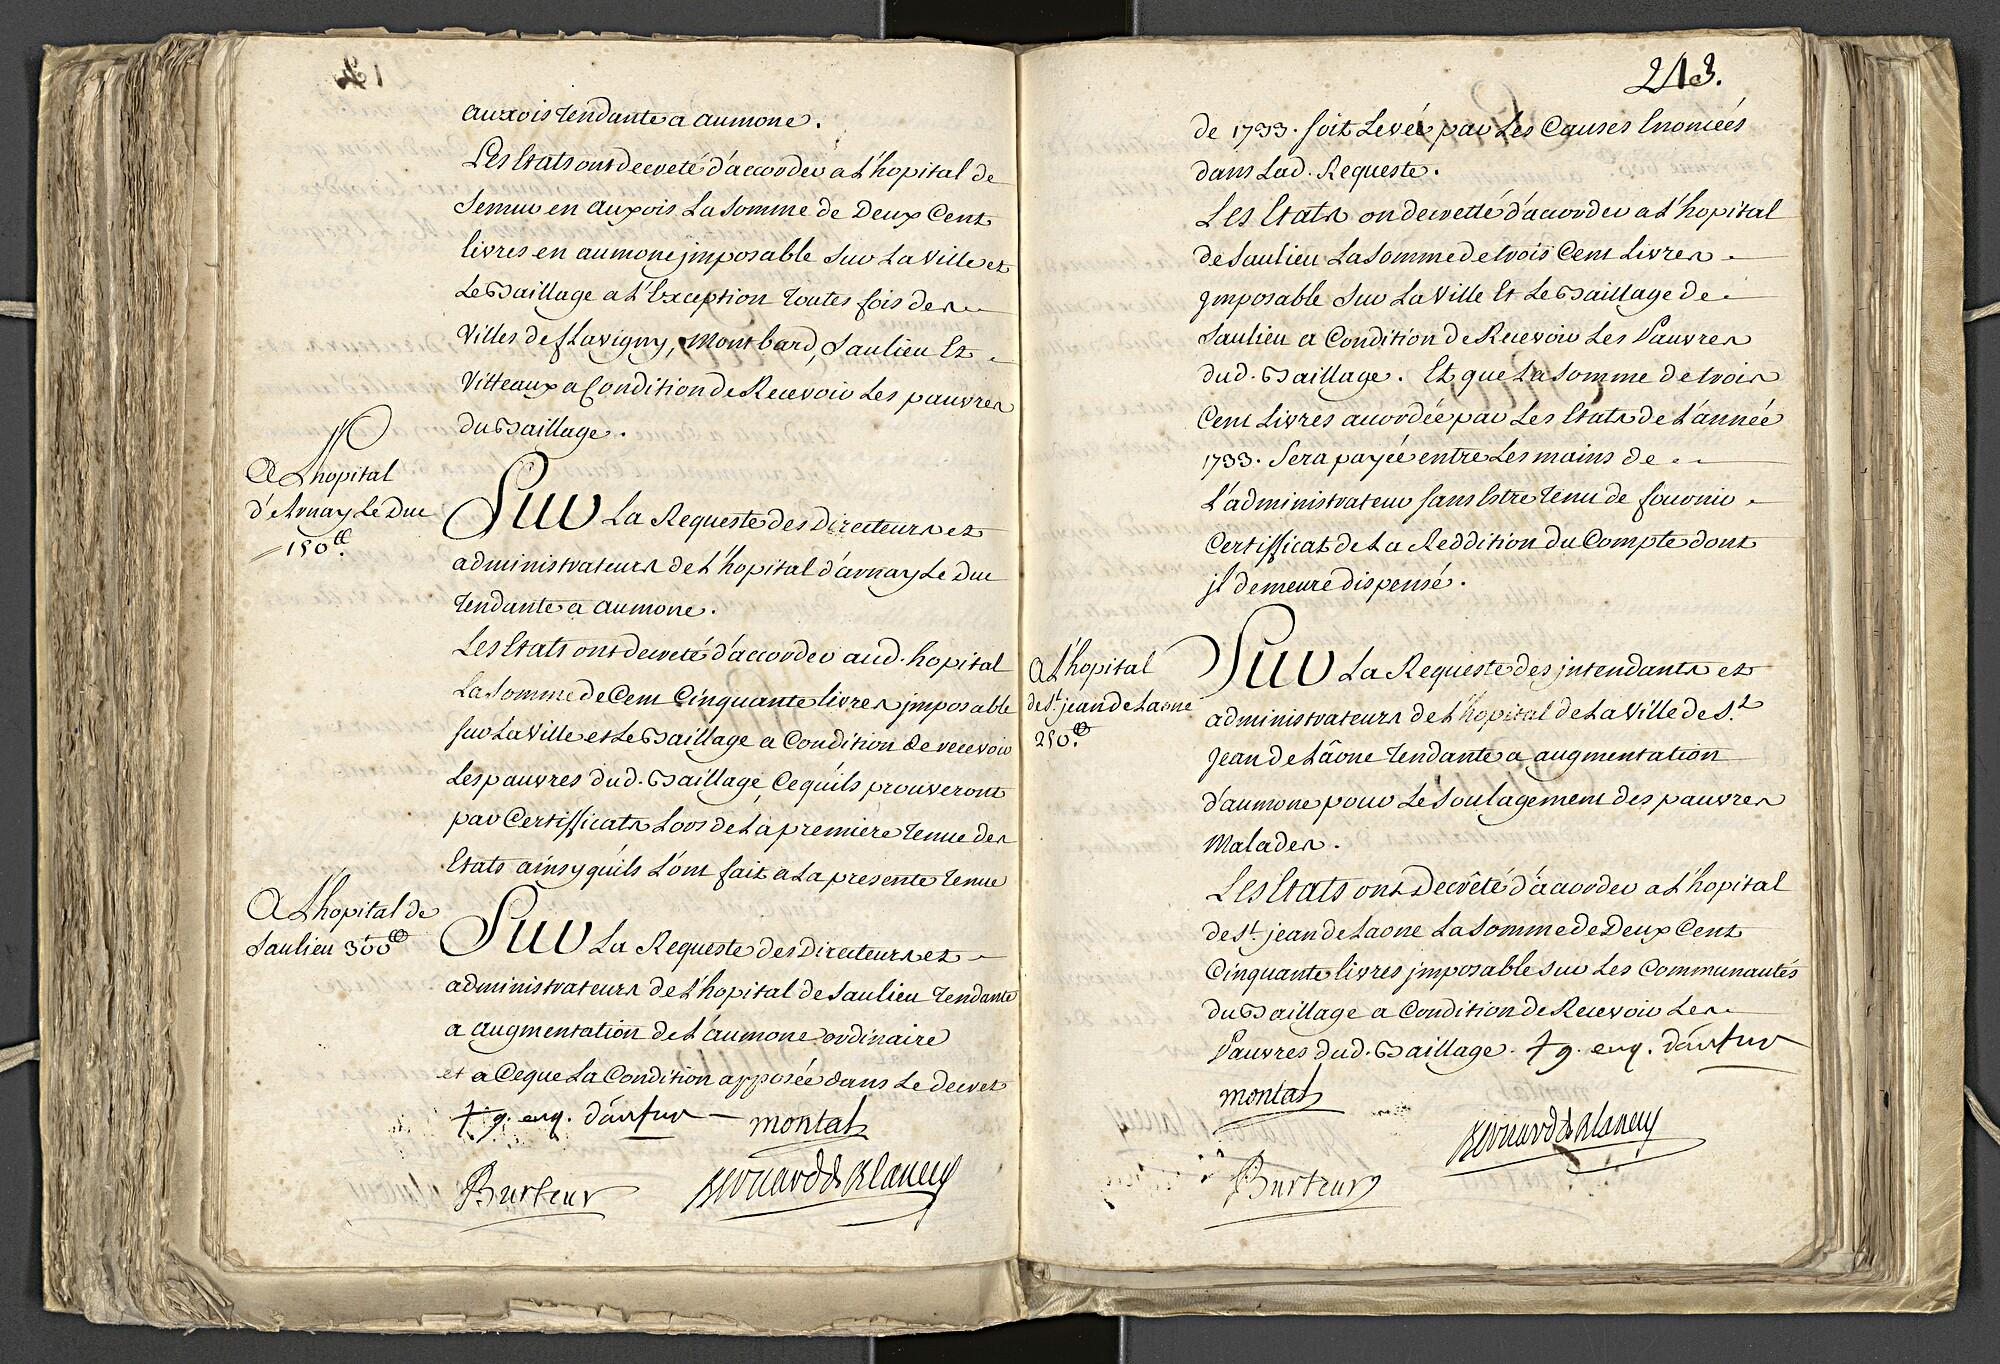 auxois tendante a aumone.
Les Etats ont decreté d'accorder a L'hopital de
Semur en auxois La Somme de Deux Cent
livres en aumone jmposable Sur La Ville et
Le Baillage a L'Exception toutes fois des
Villes de flavigny, Montbard, Saulieu Et
Vitteaux a Condition de Recevoir Les pauvres
du Baillage.
A L'hopital
d'Arnay Le Duc
150.tt
Sur La Requeste des Directeurs et
administrateurs de L'hopital d'arnay Le Duc
tendante a aumone.
Les Etats ont decreté d'accorder aud. hopital
La Somme de Cent Cinquante livres jmposable
sur La Ville et Le Baillage a Condition de recevoir
Les pauvres dud. Baillage, Ce quils prouveront
par Certifficats Lors de La première tenue des
Etats ainsy quils L'ont fait a La presente tenue
A L'hopital de
Saulieu 300tt
Sur La Requeste des Directeurs et
administrateurs de L'hopital de Saulieu tendante
a augmentation de L'aumone ordinaire
et a Ce que La Condition apposée dans Le decret
+ g. evq. d'autun montal
Burteur Bernard de Blancey
213.
de 1733. soit Levée par Les Causes Enoncées
dans Lad. Requeste.
Les Etats on decretté d'accorder a L'hopital
de Saulieu La Somme de trois Cent Livres
jmposable Sur La Ville Et Le Baillage de
Saulieu a Condition de Recevoir Les Pauvres
dud. Baillage. Et que La Somme de trois
Cent Livres accordée par Les Etats de L'année
1733. Sera payée entre Les mains de
L'administrateur sans Estre tenu de fournir
Certifficat de La Reddition du Compte dont
jl demeure dispensé.
A L'hopital
de St. jean de Laone
250.tt
Sur La Requeste des jntendants et
administrateurs de L'hopital de La Ville de S.t
Jean de Lâone tendante a augmentation
d'aumone pour Le Soulagement des pauvres
Malades.
Les Etats ont Decrêté d'accorder a L'hopital
de St. jean de Laone La Somme de Deux Cent
Cinquante livres jmposable Sur Les Communautés
du Baillage a Condition de Recevoir Les
Pauvres dud. Baillage. + g. evq. d'autun
montal
Bernard de Blancey
Burteur